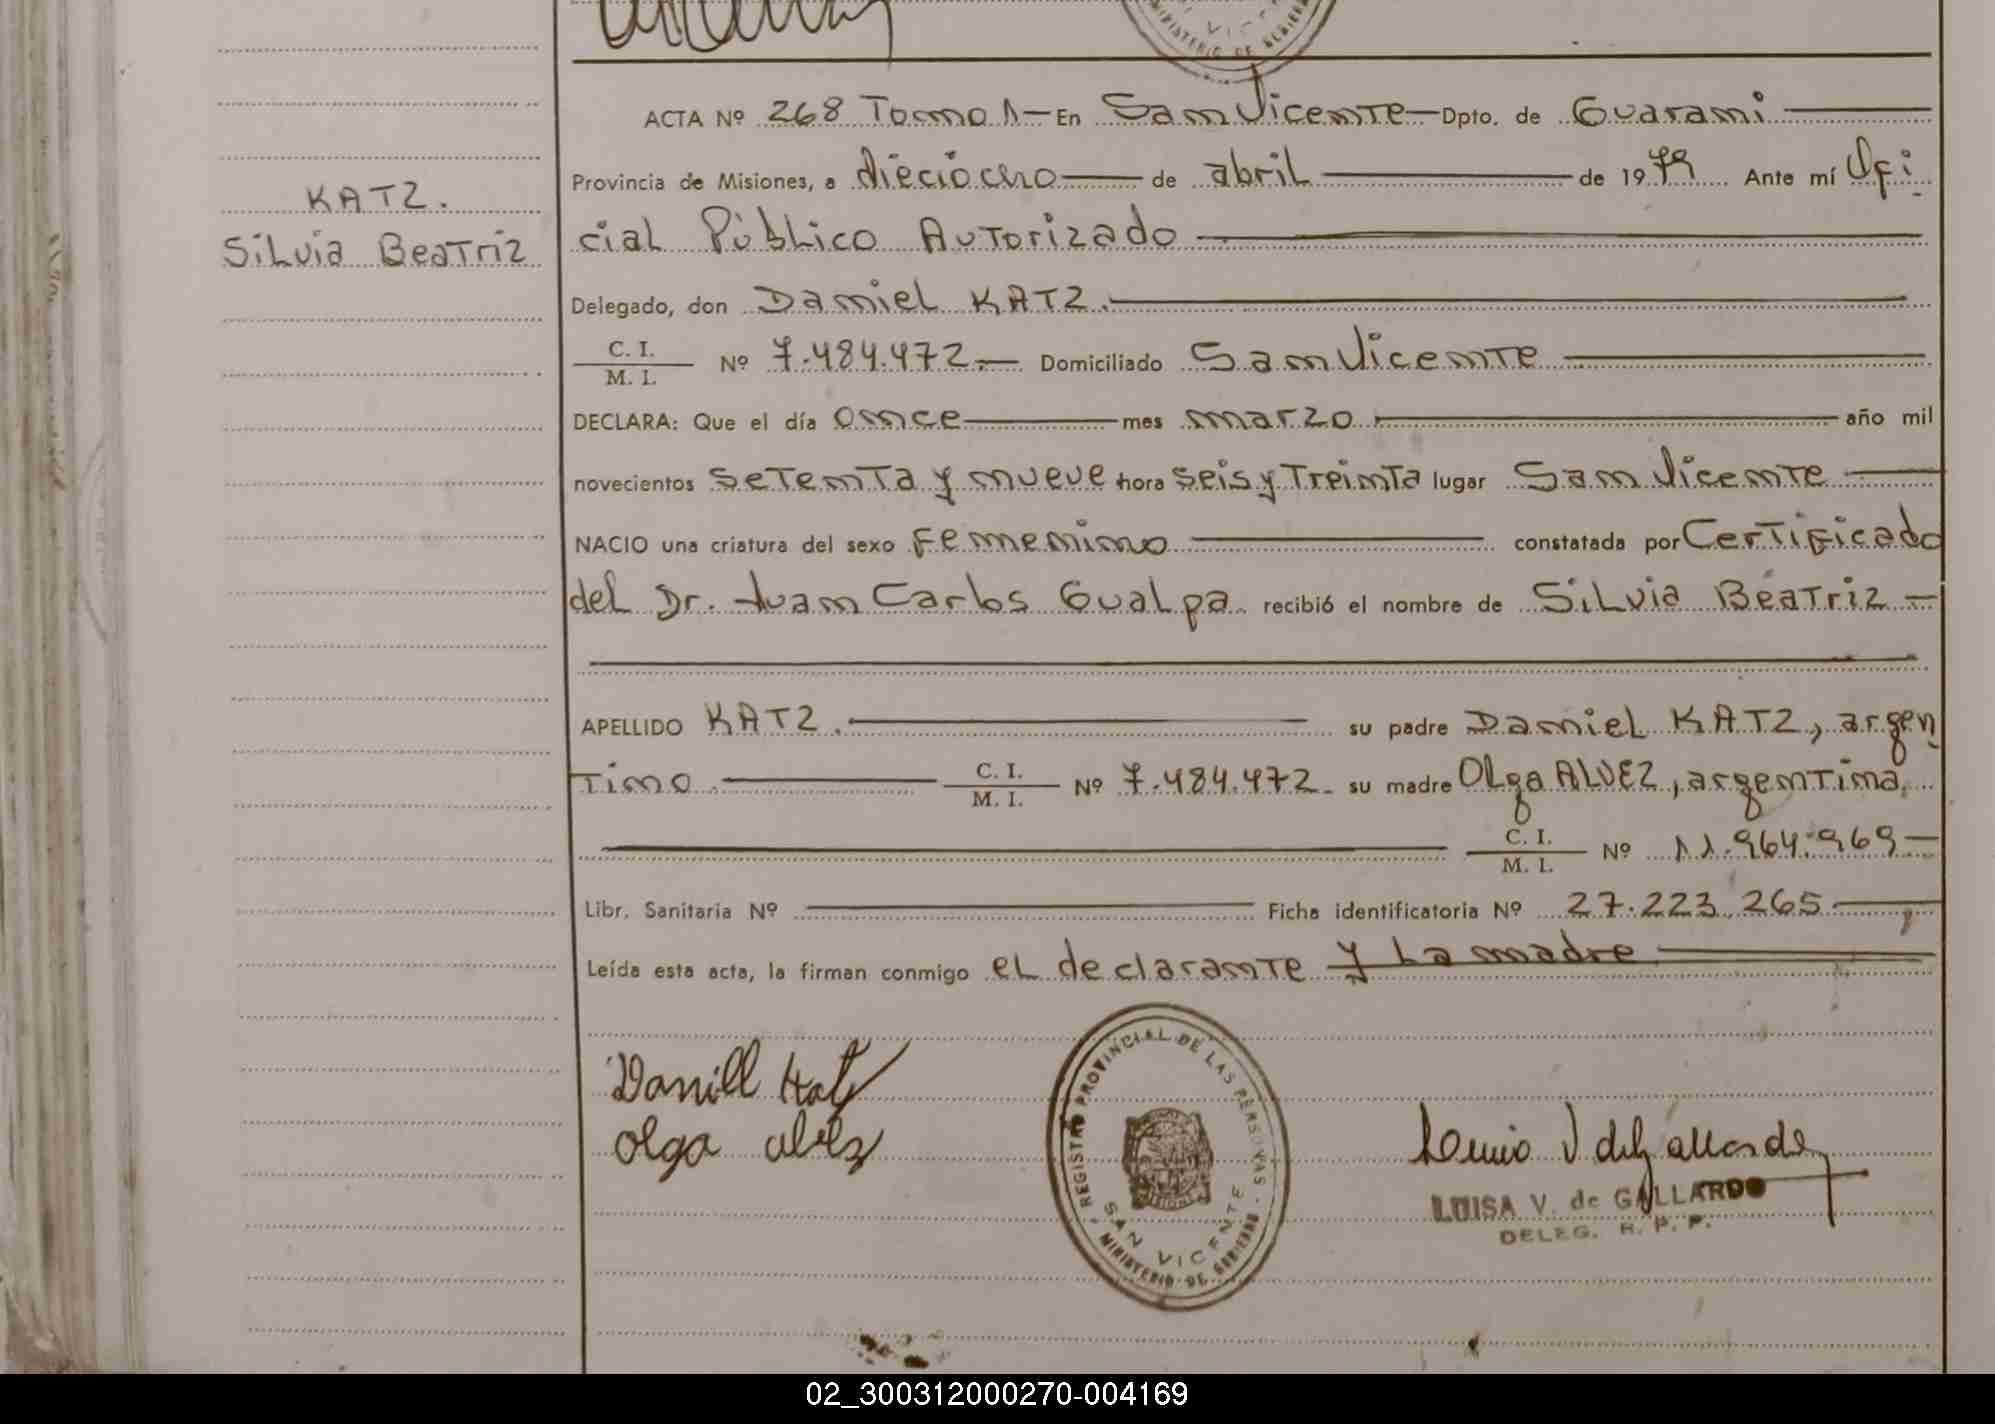 VICENTE
MINISTERIO DE GOBIERNO
ACTA Nº 268 Tomo 1 — En San Vicente — Dpto. de Guarani
Provincia de Misiones, a dieciocho de abril de 1979 Ante mí Ofi
cial Público Autorizado
KATZ.
Silvia Beatriz
Delegado, don Daniel KATZ.
C. I.
M. I.
Nº 7.484.472.— Domiciliado San Vicente
DECLARA: Que el día once mes marzo año mil
novecientos setenta y nueve hora seis y treinta lugar San Vicente
NACIO una criatura del sexo Femenino constatada por Certificado
del Dr. Juan Carlos Gualpa recibió el nombre de Silvia Beatriz —
APELLIDO KATZ. su padre Daniel KATZ, argen
tino. C. I. M. I. Nº 7.484.472. su madre Olga ALVEZ, argentina,
C. I. M. I. Nº 11.964.969 —
Libr. Sanitaria Nº Ficha identificatoria Nº 27.223.265
Leída esta acta, la firman conmigo el declarante y la madre
Daniel Katz
Olga Alvez
REGISTRO PROVINCIAL DE LAS PERSONAS
SAN VICENTE
MINISTERIO DE GOBIERNO
LUISA V. de GALLARDO
DELEG. R. P. P.
02_300312000270-004169